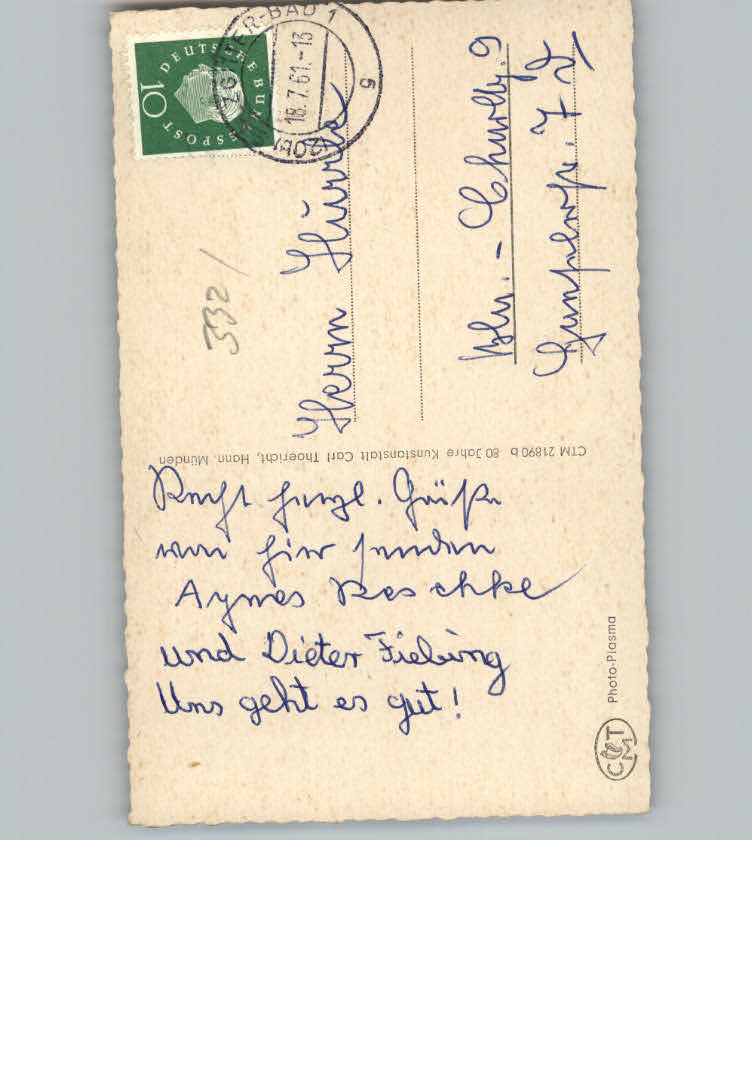 Recht herzl. Grüße
von hier senden
Agnes Reschke
und Dieter Fiebing
Uns geht es gut!
Herrn
Bln. - Charlbg. 9
7
332 /
DEUTSCHE BUNDESPOST
10
18.7.61.-13
CTM 21890 b 80 Jahre Kunstanstalt Carl Thoericht, Hann. Münden
Photo-Plasma
CTM